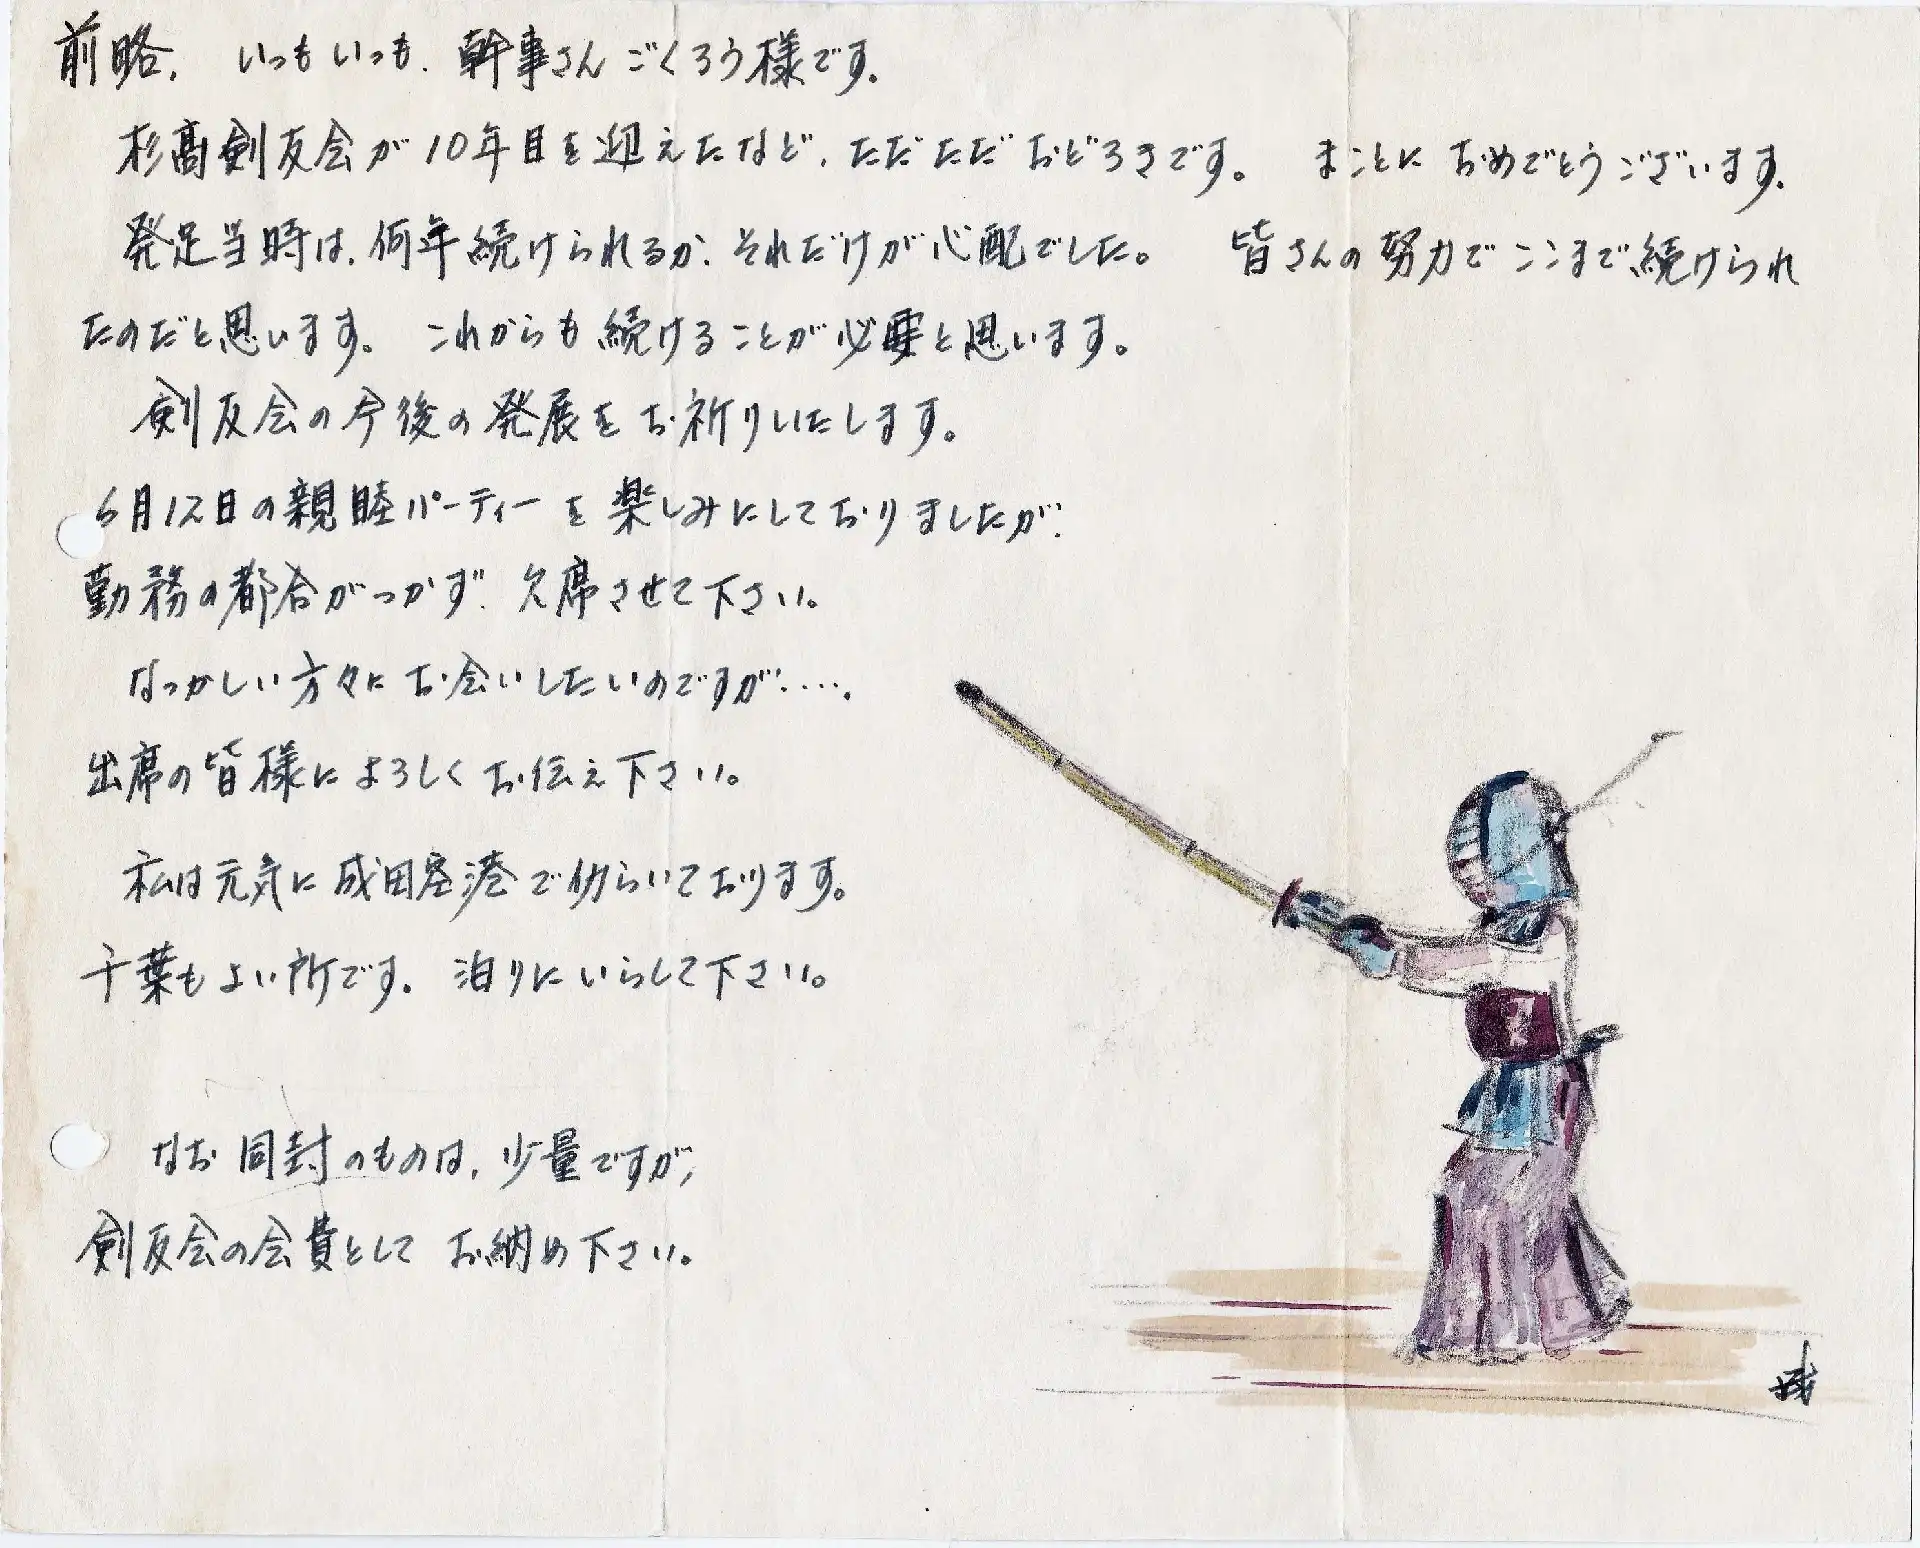 前略、 いつもいつも、幹事さんごくろう様です。
杉高剣友会が10年目を迎えたなど、ただただおどろきです。 まことにおめでとうございます。
発足当時は、何年続けられるか、それだけが心配でした。 皆さんの努力でここまで続けられ
たのだと思います。 これからも続けることが必要と思います。
剣友会の今後の発展をお祈りいたします。
6月12日の親睦パーティーを楽しみにしておりましたが、
勤務の都合がつかず、欠席させて下さい。
なつかしい方々にお会いしたいのですが‥‥。
出席の皆様によろしくお伝え下さい。
私は元気に成田空港で仂らいております。
千葉もよい所です。 泊りにいらして下さい。
なお同封のものは、少量ですが、
剣友会の会費としてお納め下さい。